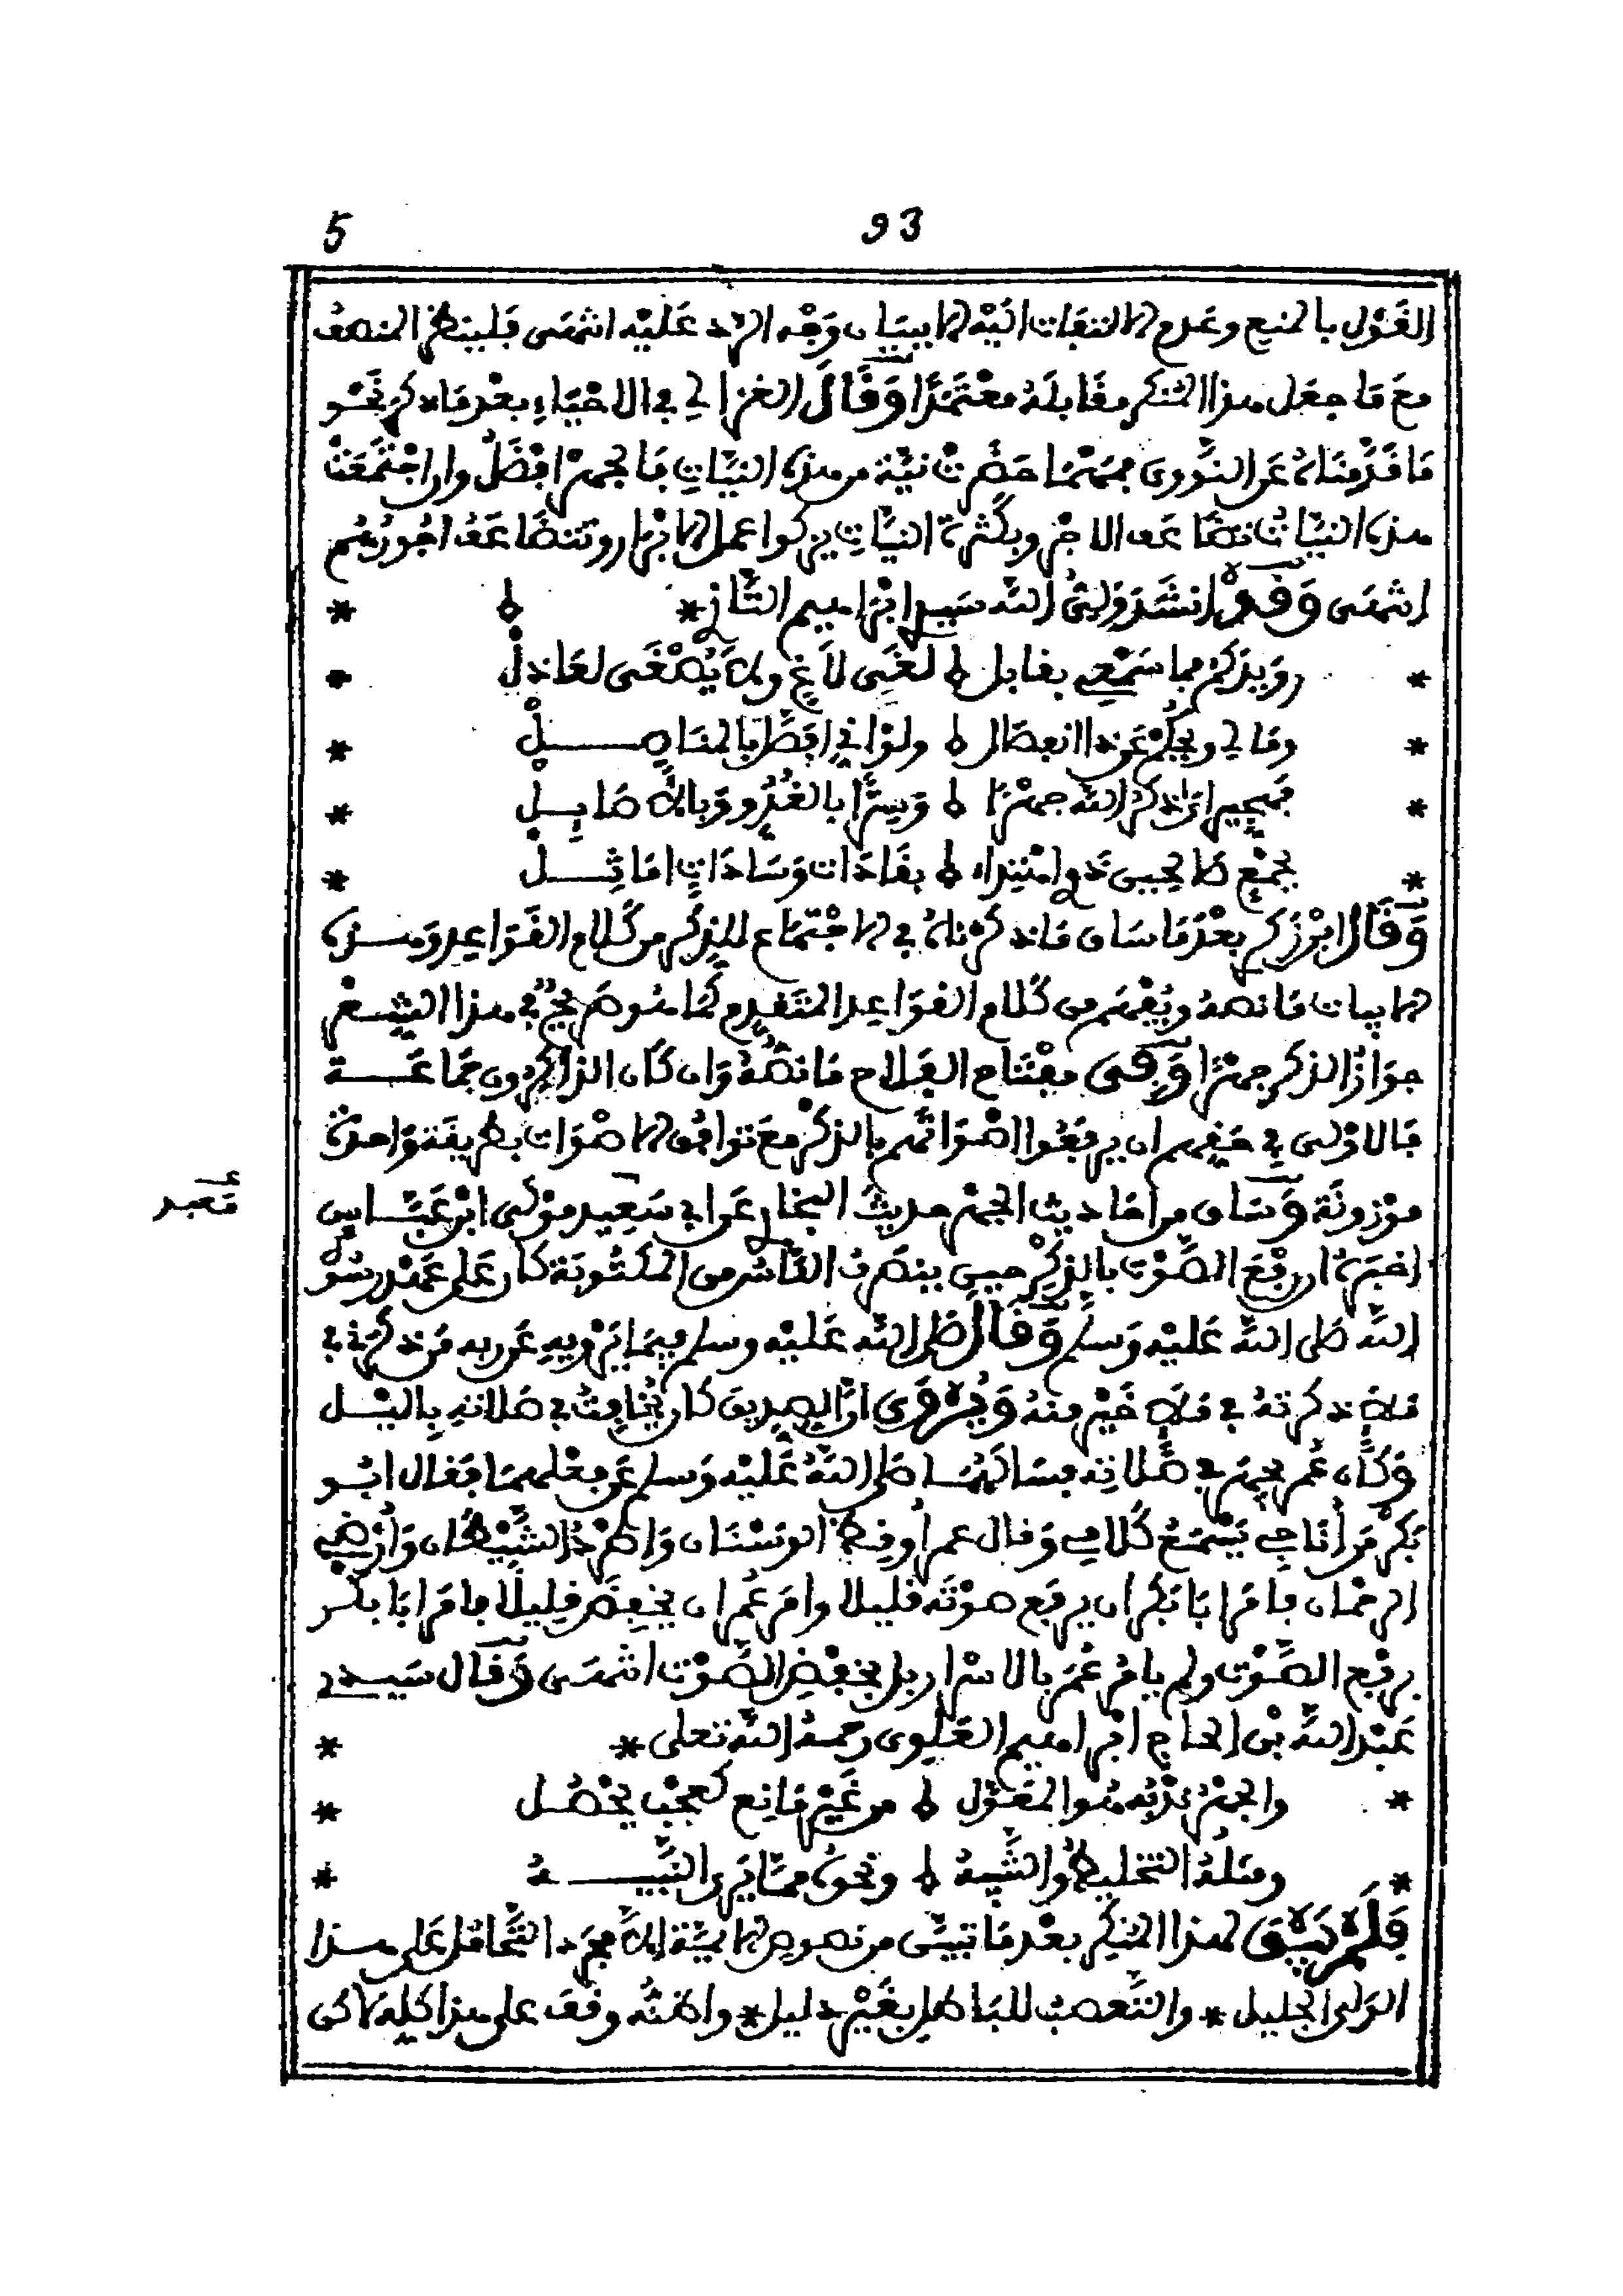 93
5
القول بالمنع وعدم الالتفات اليه الا ببيان وجه الرد عليه انتهى فلينظر المنصف
مع ما جعل هذا المنكر مقابله معتمدا وقال الغزالي في الاحياء بعد ما ذكر نحو
ما قدمناه عن النووي فمهما حضرت نية من هذه النيات فالجهر افضل وان اجتمعت
هذه النيات تضاعف الاجر وبكثرة النيات يزكوا عمل الابرار وتتضاعف اجورهم
انتهى وقد انشد ولي الله سيد ابراهيم التازي *
* وبذكره مما سمعي بقابل لغى لاغ ولا يصغى لعاذل *
* وما لي ويحكم عن ذا انفصال ولو اني اقطر بالمناصل *
* فمجير ان ذكر الله جهرا وسرا بالغدو وبالاصايل *
* بجمع طالحيين ذوا اهتزاء بقادات وسادات اماثل *
وقال ابن زكر بعد ما ساق ما ذكرناه في الاجتماع للذكر من كلام القواعد وهذه
الابيات ما نصه ويفهم من كلام القواعد المتقدم كما هو صريح في هذا الشعر
جواز الذكر جهرا وفي مفتاح الفلاح ما نصه وان كان الذاكرون جماعة
فالاولى في حقهم ان يرفعوا اصواتهم بالذكر مع توافق الاصوات بطريقة واحدة
موزونة وساق من احاديث الجهر حديث البخاري عن ابي سعيد مولى ابن عباس
معبد
اخبره ان رفع الصوت بالذكر حين ينصرف الناس من المكتوبة كان على عهد رسول
الله صلى الله عليه وسلم وقال صلى الله عليه وسلم فيما يرويه عن ربه من ذكرني في
ملا ذكرته في ملا خير منه ويروى ان الصديق كان يخافت في صلاته بالليل
وكان عمر يجهر في صلاته فسالهما صلى الله عليه وسلم عن فعلهما فقال ابو
بكر من اناجي يسمع كلامي وقال عمر اوقظ الوسنان واطرد الشيطان وارضي
الرحمان فامر ابا بكر ان يرفع صوته قليلا وامر عمر ان يخفض قليلا فامر ابا بكر
برفع الصوت ولم يامر عمر بالاسرار بل بخفض الصوت انتهى وقال سيدي
عبد الله بن الحاج ابراهيم العلوي رحمه الله تعلى *
* والجهر ندبه هو المقول من غير مانع كعجب يحصل *
* ومثله التخليط والتشبه ونحوه مما يرى النبيه *
فلم يبق لهذا المنكر بعد ما تبين من نصوص الايمة الا مجرد التحامل على هذا
الولي الجليل * والتعصب للباطل بغير دليل * واظنه وقف على هذا كله لاكن